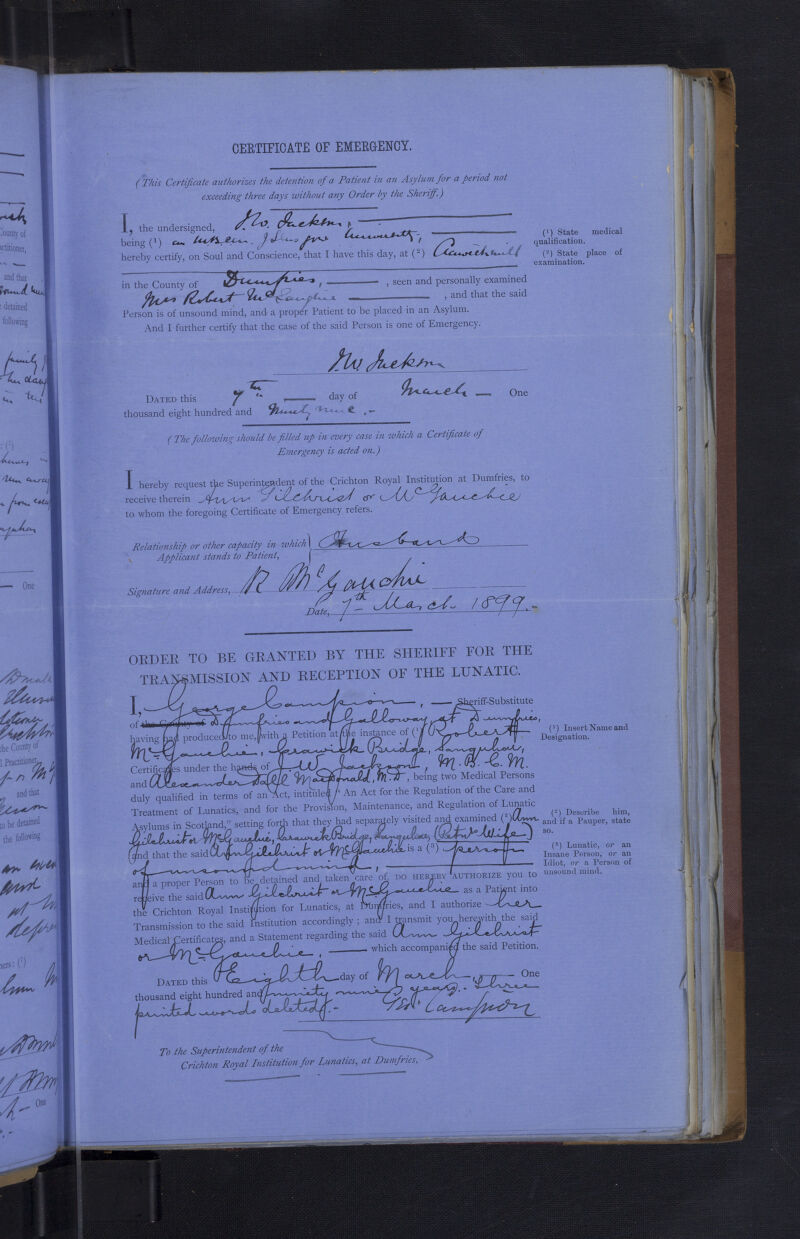 CERTIFICATE OF EMERGENCY.
(This Certificate authorizes the detention of a Patient in an Asylum for a period not
exceeding three days without any Order by the Sheriff.)
I, the undersigned, J. W. Jackson,
being (¹)
hereby certify, on Soul and Conscience, that I have this day, at (²) Crawick mill
(¹) State medical
qualification.
(²) State place of
examination.
in the County of Dumfries, , seen and personally examined
Mrs Robert McGauchie , and that the said
Person is of unsound mind, and a proper Patient to be placed in an Asylum.
And I further certify that the case of the said Person is one of Emergency.
J. W. Jackson
DATED this 7th day of March One
thousand eight hundred and Ninety nine.
(The following should be filled up in every case in which a Certificate of
Emergency is acted on.)
I hereby request the Superintendent of the Crichton Royal Institution at Dumfries, to
receive therein Ann Gilchrist or McGauchie
to whom the foregoing Certificate of Emergency refers.
Relationship or other capacity in which Husband
Applicant stands to Patient,
Signature and Address, R McGauchie
Date, 7th March 1899.
ORDER TO BE GRANTED BY THE SHERIFF FOR THE
TRANSMISSION AND RECEPTION OF THE LUNATIC.
I, George Campion, Sheriff-Substitute
of the County of Dumfries and Galloway at Dumfries,
having had produced to me, with a Petition at the instance of (¹) Robert
McGauchie, Crawick Bridge, Sanquhar,
(¹) Insert Name and
Designation.
Certificates under the hands of J W Jackson, M.B. C.M.
and Alexander Dall MacDonald, M.D., being two Medical Persons
duly qualified in terms of an Act, intituled "An Act for the Regulation of the Care and
Treatment of Lunatics, and for the Provision, Maintenance, and Regulation of Lunatic
Asylums in Scotland," setting forth that they had separately visited and examined (²) Ann
Gilchrist or McGauchie, Crawick Bridge, Sanquhar, (Petrs Wife)
and that the said Ann Gilchrist or McGauchie is a (³) person
of unsound mind,
(²) Describe him,
and if a Pauper, state
so.
(³) Lunatic, or an
Insane Person, or an
Idiot, or a Person of
unsound mind.
and a proper Person to be detained and taken care of, DO HEREBY AUTHORIZE you to
receive the said Ann Gilchrist or McGauchie as a Patient into
the Crichton Royal Institution for Lunatics, at Dumfries, and I authorize her
Transmission to the said Institution accordingly; and I transmit you herewith the said
Medical Certificates, and a Statement regarding the said Ann Gilchrist
or McGauchie, which accompanied the said Petition.
DATED this Eighth day of March, One
thousand eight hundred and ninety nine years. Three
printed words deleted.
Geo Campion
To the Superintendent of the
Crichton Royal Institution for Lunatics, at Dumfries.